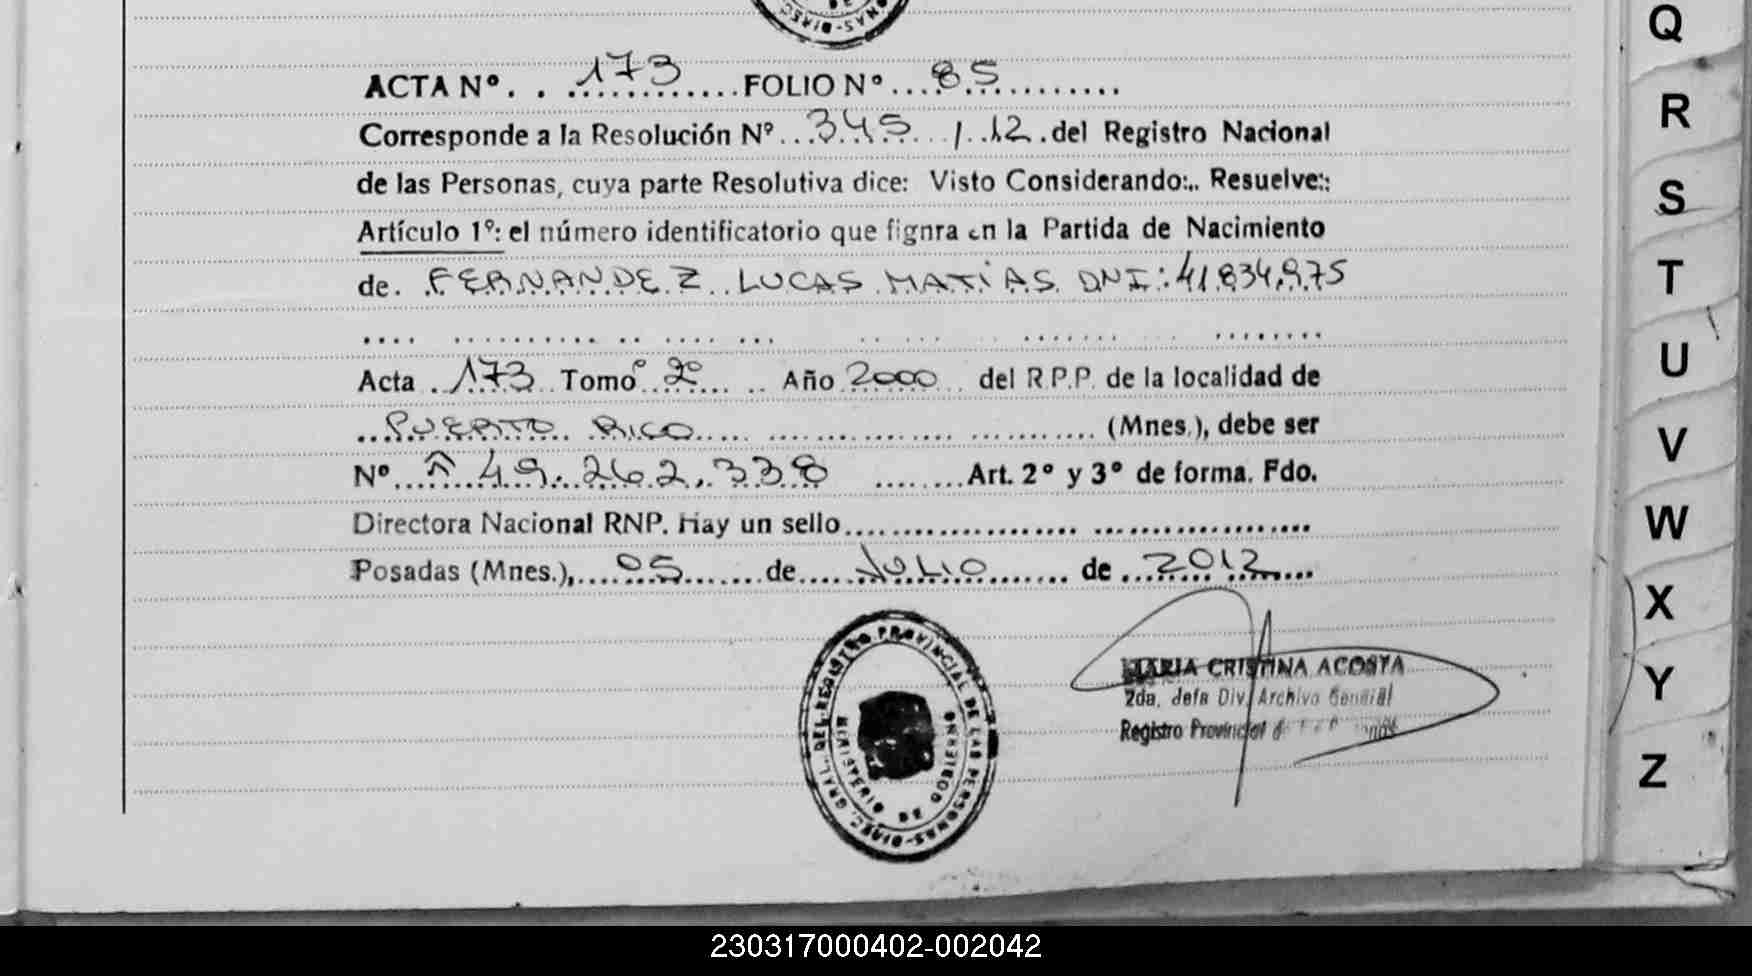 ACTA Nº. . 173 FOLIO Nº 85
Corresponde a la Resolución Nº 345 / 12 del Registro Nacional
de las Personas, cuya parte Resolutiva dice: Visto Considerando:.. Resuelve::
Artículo 1º: el número identificatorio que fignra en la Partida de Nacimiento
de. FERNANDEZ LUCAS MATÍAS DNI: 41.834.975
Acta 173 Tomoº 2º Año 2000 del R.P.P. de la localidad de
PUERTO RICO (Mnes.), debe ser
Nº 49.262.338 Art. 2º y 3º de forma. Fdo.
Directora Nacional RNP. Hay un sello
Posadas (Mnes.), 05 de JULIO de 2012
DIREC. GRAL. DEL REGISTRO PROVINCIAL DE LAS PERSONAS
MINISTERIO DE GOBIERNO
MARIA CRISTINA ACOSTA
2da. Jefa Div. Archivo General
Registro Provincial
Q
R
S
T
U
V
W
X
Y
Z
230317000402-002042